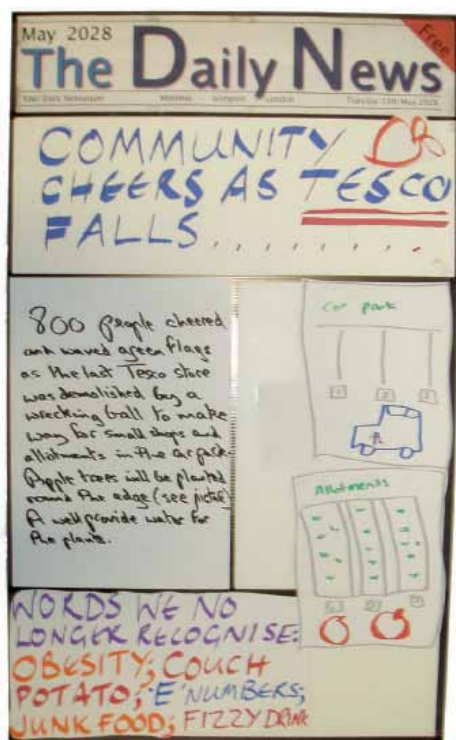 May 2028
Free
The Daily News
Tuesday 13th May 2028
COMMUNITY
CHEERS AS TESCO
FALLS.........
800 people cheered
and waved green flags
as the last Tesco store
was demolished by a
wrecking ball to make
way for small shops and
allotments in the carpark.
Apple trees will be planted
round the edge (see picture)
A well provide water for
the plants.
Car park
1 2 3
Allotments
WORDS WE NO
LONGER RECOGNISE:
OBESITY; COUCH
POTATO; 'E' NUMBERS;
JUNK FOOD; FIZZY DRINK